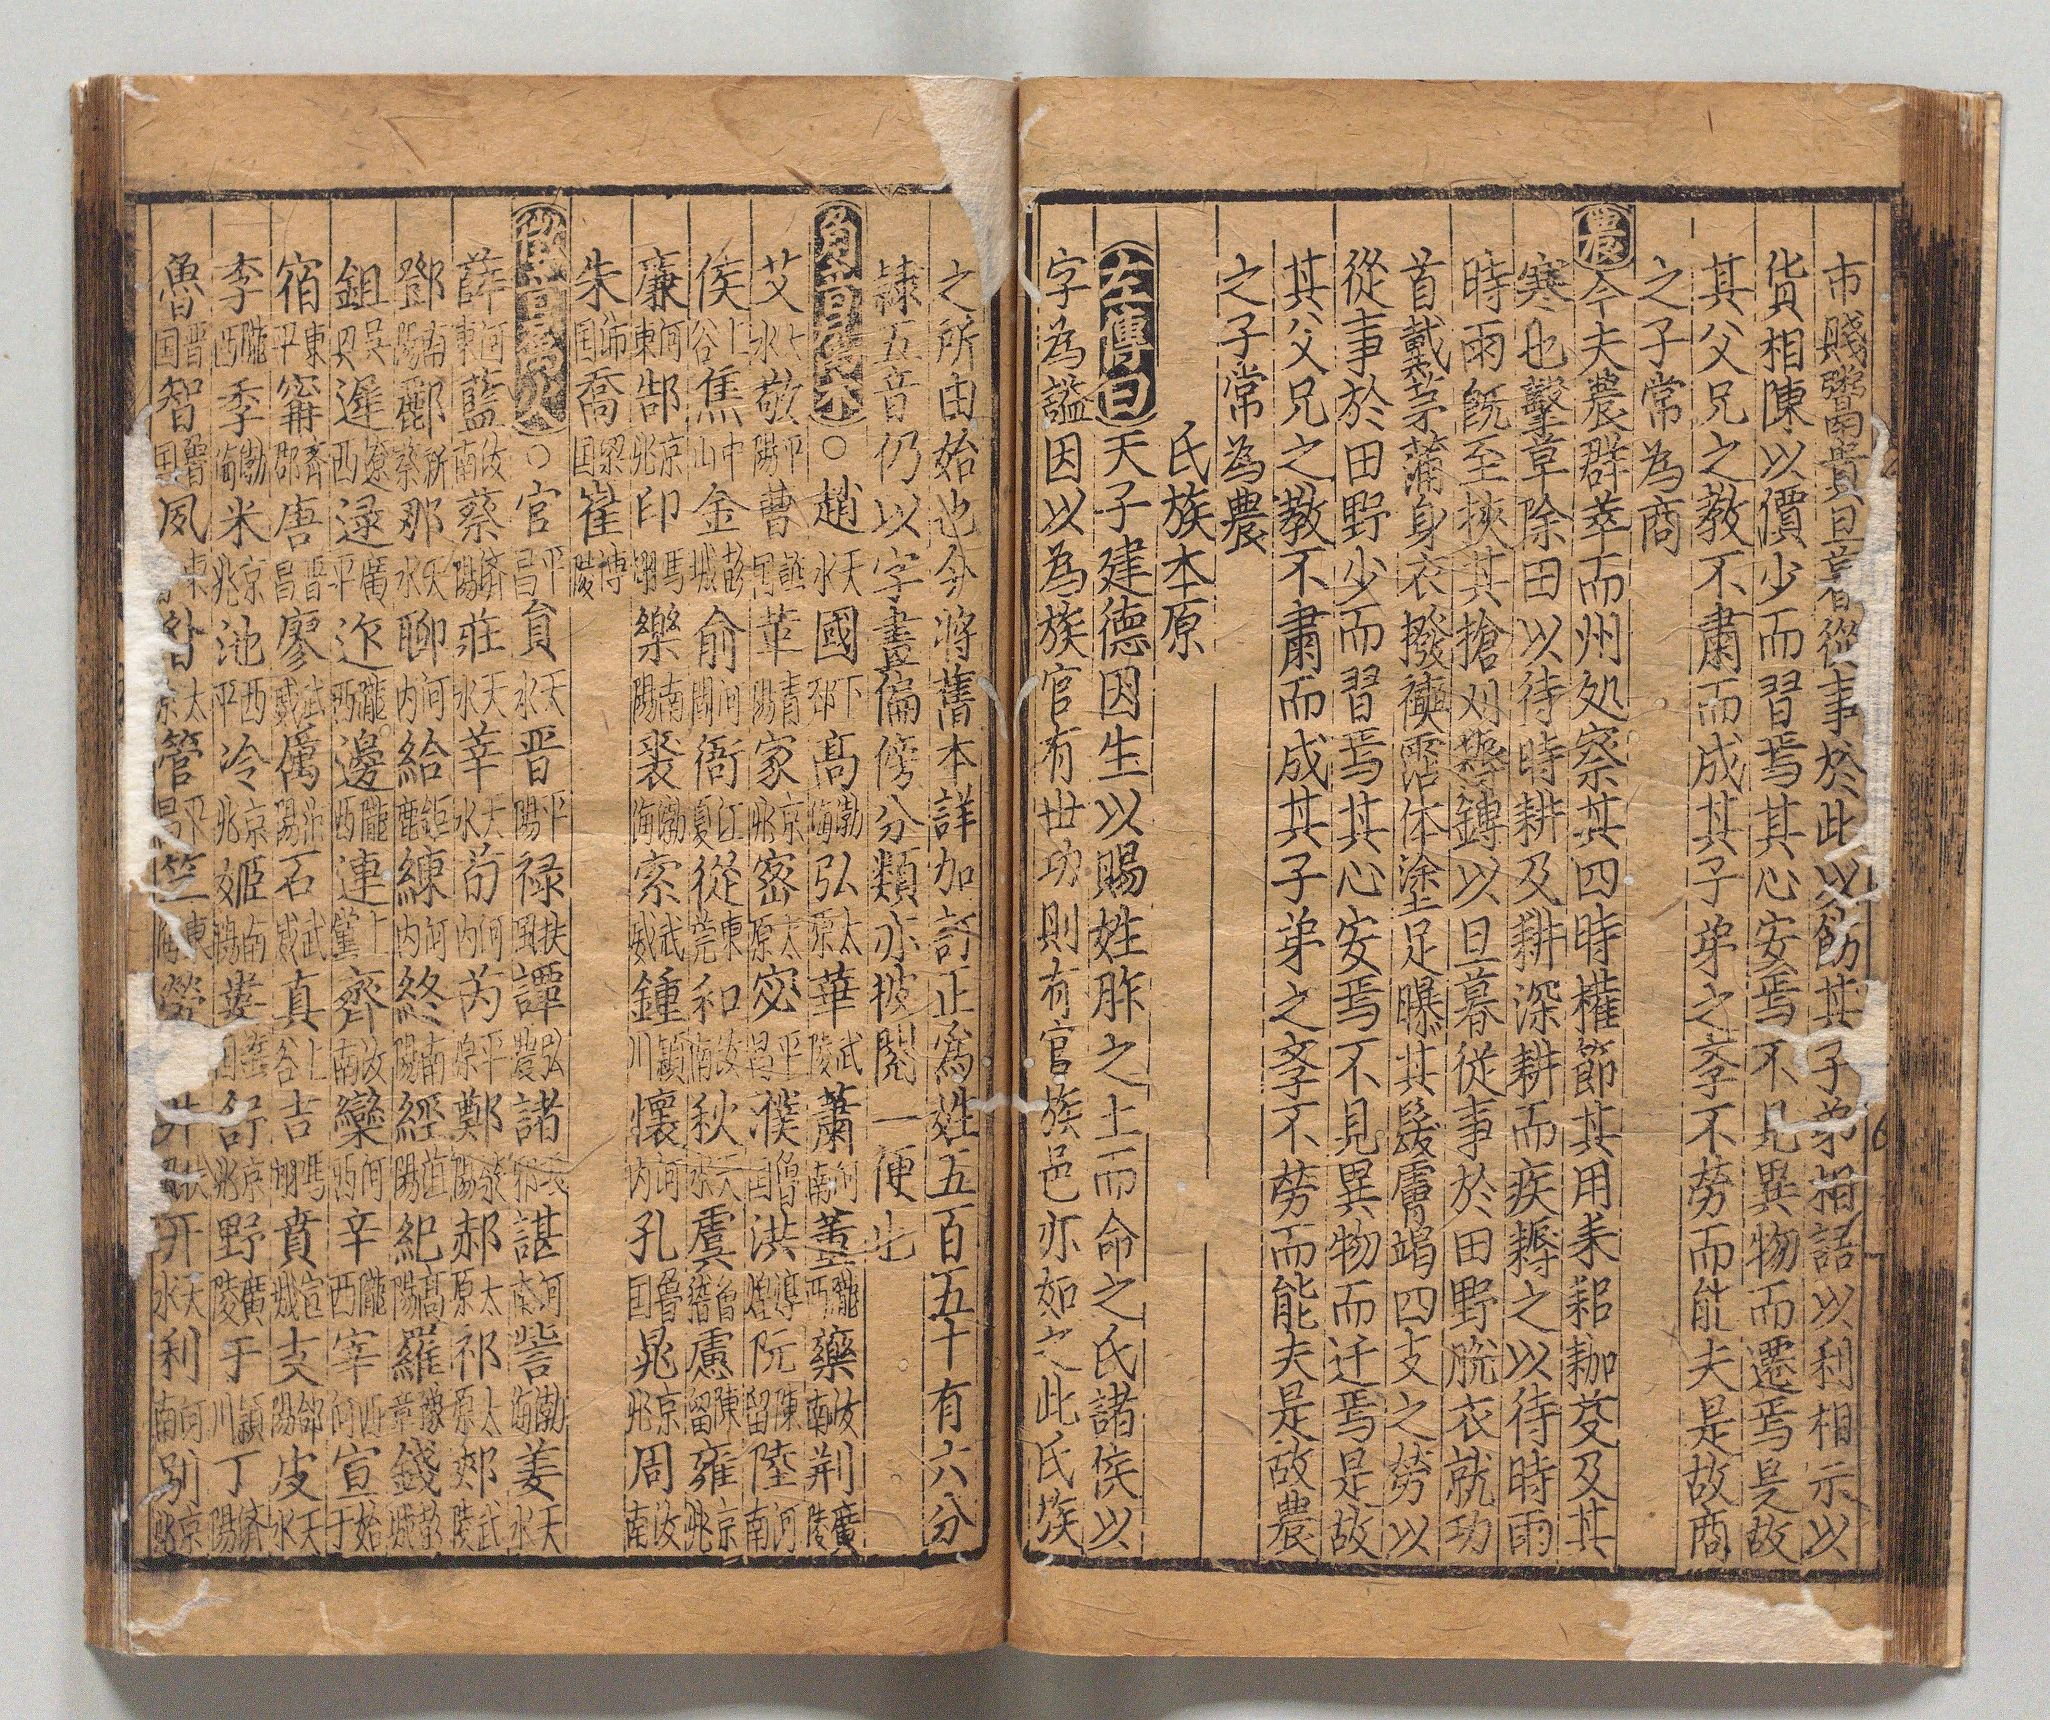 市賤鬻貴旦暮從事於此以飭其子弟相語以利相示以
貨相陳以價少而習焉其心安焉不見異物而遷焉是故
其父兄之教不肅而成其子弟之斈不勞而能夫是故商
之子常為商
農今夫農群萃而州処察其四時權節其用耒耜耞芟及其
寒也擊草除田以待時耕及耕深耕而疾耨之以待時雨
時雨既至挾其搶刈耨鎛以旦暮從事於田野脫衣就功
首戴茅蒲身衣撥襫霑体塗足曝其髮膚竭四支之勞以
從事於田野少而習焉其心安焉不見異物而迁焉是故
其父兄之教不肅而成其子弟之斈不勞而能夫是故農
之子常為農
氏族本原
左傳曰天子建德因生以賜姓胙之土而命之氏諸侯以
字為諡因以為族官有世功則有官族邑亦如之此氏族
之所由始也今將舊本詳加訂正為姓五百五十有六分
隸五音仍以字畫偏傍分類亦披閱一便也
角音○趙天水國下邳高渤海弘太原華武陵蕭河南董隴西藥汝南荆廣陵
艾天水敬平陽曹譙国革青陽家京兆密太原宓平昌濮魯国洪燉煌阮陳留陸河南
侯上谷焦中山金彭城俞河間衙江夏從東莞和汝南秋天水虞會稽慮陳留雍京兆
廉河東郜京兆印馮翊樂南陽裘渤海索武威鍾潁川懷河内孔魯国晁京兆周汝南
朱沛国喬梁国崔博陵
○官平昌貟天水晋平陽禄扶風譚弘農諸諶河南訾渤海姜天水
薛河東藍汝南蔡濟陽莊天水莘天水荀河内芮平原鄭滎陽郝太原祁太原郟武陵
鄧南陽鄜那天水聊河内給鉅鹿練河内終南陽經紀高陽羅豫章錢彭城
鉏吳興暹遼西逯廣平迮隴西邊隴西連上黨齊汝南欒河西辛隴西宰西河宣始平
宿東平甯齊郡唐晋昌廖武威厲石武威真上谷吉馮翊賁宣城支郃陽皮天水
李隴西季渤海米京兆池西平冷京兆姬南陽婁舒京兆野廣陵于潁川丁濟陽
魯晋国智魯国夙管平昌竺東海勞开天水利河南別京兆